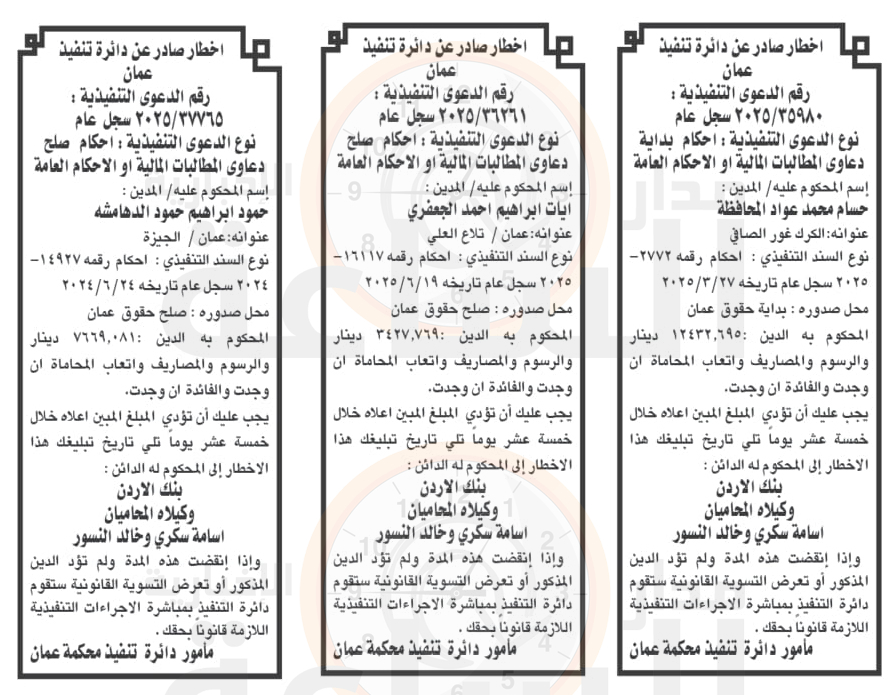 اخطار صادر عن دائرة تنفيذ
عمان
رقم الدعوى التنفيذية :
٢٠٢٥/٣٥٩٨٠ سجل عام
نوع الدعوى التنفيذية : احكام بداية
دعاوى المطالبات المالية او الاحكام العامة
إسم المحكوم عليه/ المدين :
حسام محمد عواد المحافظة
عنوانه:الكرك غور الصافي
نوع السند التنفيذي : احكام رقمه ٢٧٧٢-
٢٠٢٥ سجل عام تاريخه ٢٠٢٥/٣/٢٧
محل صدوره : بداية حقوق عمان
المحكوم به الدين :١٢٤٣٢,٦٩٥ دينار
والرسوم والمصاريف واتعاب المحاماة ان
وجدت والفائدة ان وجدت.
يجب عليك أن تؤدي المبلغ المبين اعلاه خلال
خمسة عشر يوماً تلي تاريخ تبليغك هذا
الاخطار إلى المحكوم له الدائن :
بنك الاردن
وكيلاه المحاميان
اسامة سكري وخالد النسور
وإذا إنقضت هذه المدة ولم تؤد الدين
المذكور أو تعرض التسوية القانونية ستقوم
دائرة التنفيذ بمباشرة الاجراءات التنفيذية
اللازمة قانوناً بحقك .
مأمور دائرة تنفيذ محكمة عمان
اخطار صادر عن دائرة تنفيذ
عمان
رقم الدعوى التنفيذية :
٢٠٢٥/٣٦٢٦١ سجل عام
نوع الدعوى التنفيذية : احكام صلح
دعاوى المطالبات المالية او الاحكام العامة
إسم المحكوم عليه/ المدين :
ايات ابراهيم احمد الجعفري
عنوانه:عمان / تلاع العلي
نوع السند التنفيذي : احكام رقمه ١٦١١٧-
٢٠٢٥ سجل عام تاريخه ٢٠٢٥/٦/١٩
محل صدوره : صلح حقوق عمان
المحكوم به الدين :٣٤٢٧,٧٦٩ دينار
والرسوم والمصاريف واتعاب المحاماة ان
وجدت والفائدة ان وجدت.
يجب عليك أن تؤدي المبلغ المبين اعلاه خلال
خمسة عشر يوماً تلي تاريخ تبليغك هذا
الاخطار إلى المحكوم له الدائن :
بنك الاردن
وكيلاه المحاميان
اسامة سكري وخالد النسور
وإذا إنقضت هذه المدة ولم تؤد الدين
المذكور أو تعرض التسوية القانونية ستقوم
دائرة التنفيذ بمباشرة الاجراءات التنفيذية
اللازمة قانوناً بحقك .
مأمور دائرة تنفيذ محكمة عمان
اخطار صادر عن دائرة تنفيذ
عمان
رقم الدعوى التنفيذية :
٢٠٢٥/٣٧٧٦٥ سجل عام
نوع الدعوى التنفيذية : احكام صلح
دعاوى المطالبات المالية او الاحكام العامة
إسم المحكوم عليه/ المدين :
حمود ابراهيم حمود الدهامشه
عنوانه:عمان / الجيزة
نوع السند التنفيذي : احكام رقمه ١٤٩٢٧-
٢٠٢٤ سجل عام تاريخه ٢٠٢٤/٦/٢٤
محل صدوره : صلح حقوق عمان
المحكوم به الدين :٧٦٦٩,٠٨١ دينار
والرسوم والمصاريف واتعاب المحاماة ان
وجدت والفائدة ان وجدت.
يجب عليك أن تؤدي المبلغ المبين اعلاه خلال
خمسة عشر يوماً تلي تاريخ تبليغك هذا
الاخطار إلى المحكوم له الدائن :
بنك الاردن
وكيلاه المحاميان
اسامة سكري وخالد النسور
وإذا إنقضت هذه المدة ولم تؤد الدين
المذكور أو تعرض التسوية القانونية ستقوم
دائرة التنفيذ بمباشرة الاجراءات التنفيذية
اللازمة قانوناً بحقك .
مأمور دائرة تنفيذ محكمة عمان